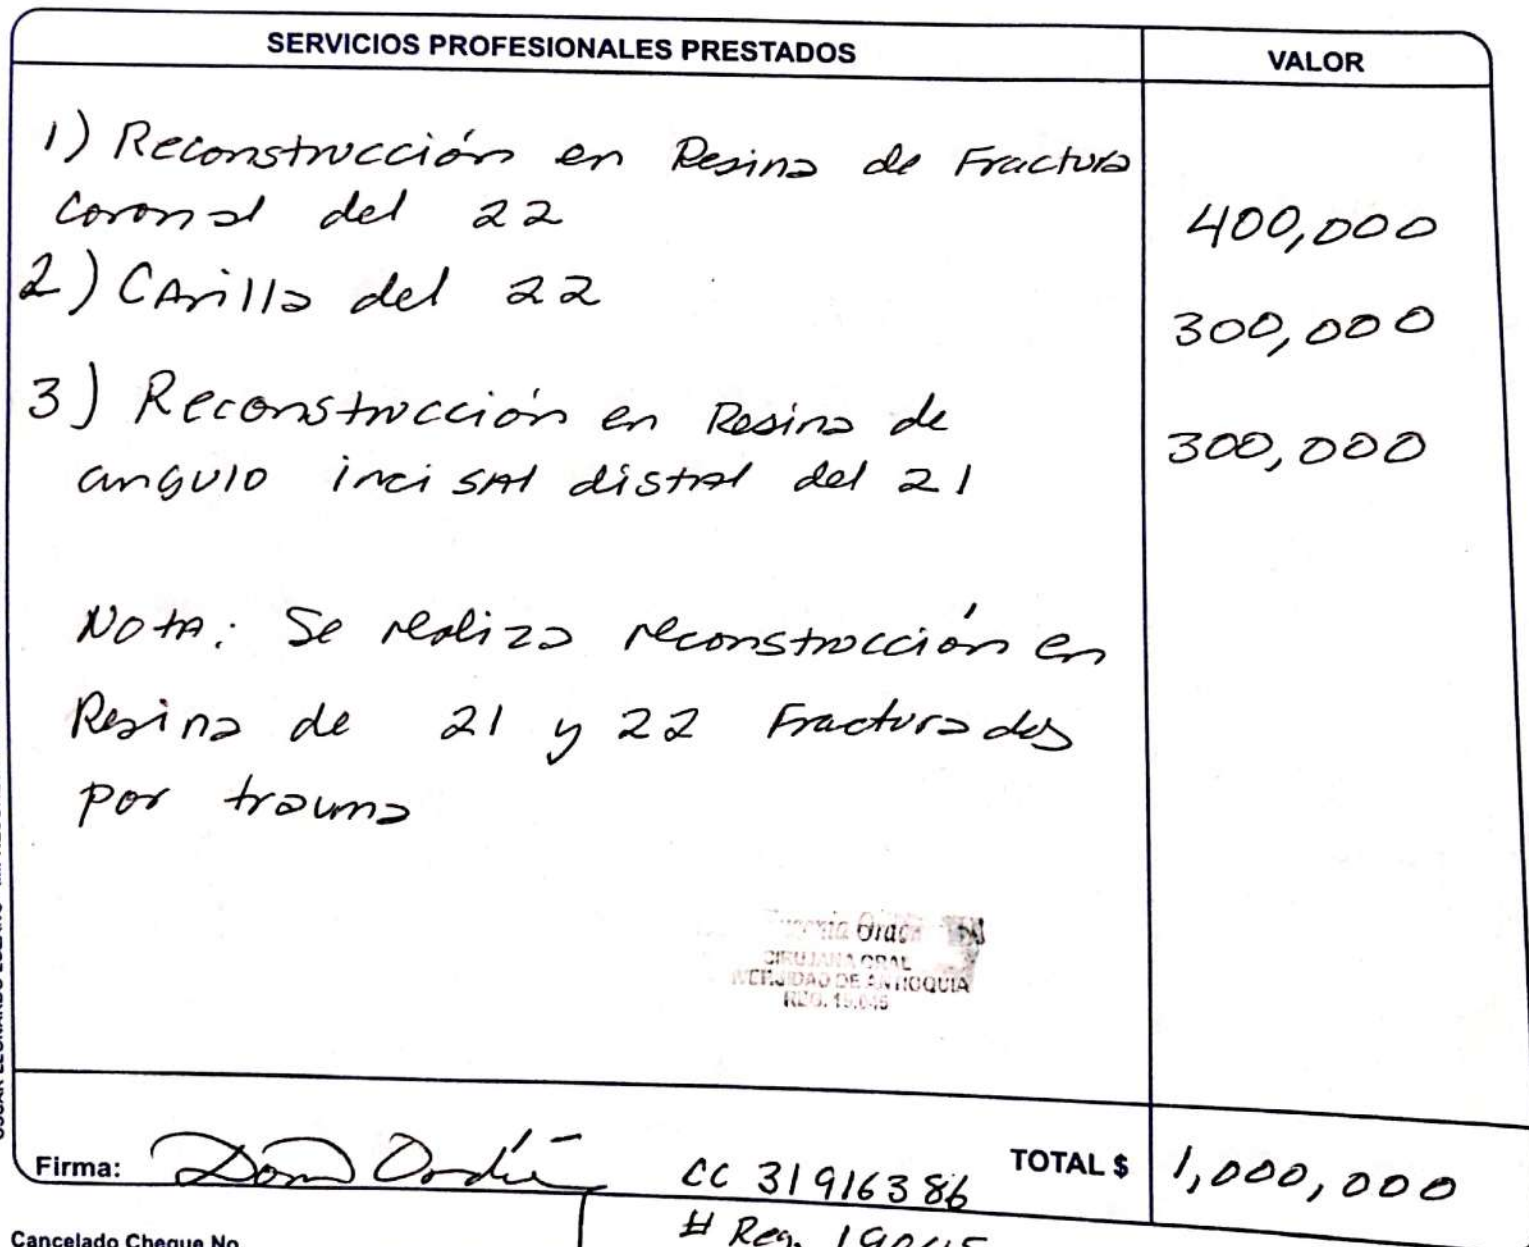 SERVICIOS PROFESIONALES PRESTADOS VALOR
1) Reconstrucción en Resina de Fractura
Coronal del 22 400,000
2) Carilla del 22 300,000
3) Reconstrucción en Resina de
angulo incisal distal del 21 300,000
Nota: Se realiza reconstrucción en
Resina de 21 y 22 Fracturados
por trauma
CIRUJANA ORAL
DE ANTIOQUIA
Firma: CC 31916386 TOTAL $ 1,000,000
# Reg.
Cancelado Cheque No.